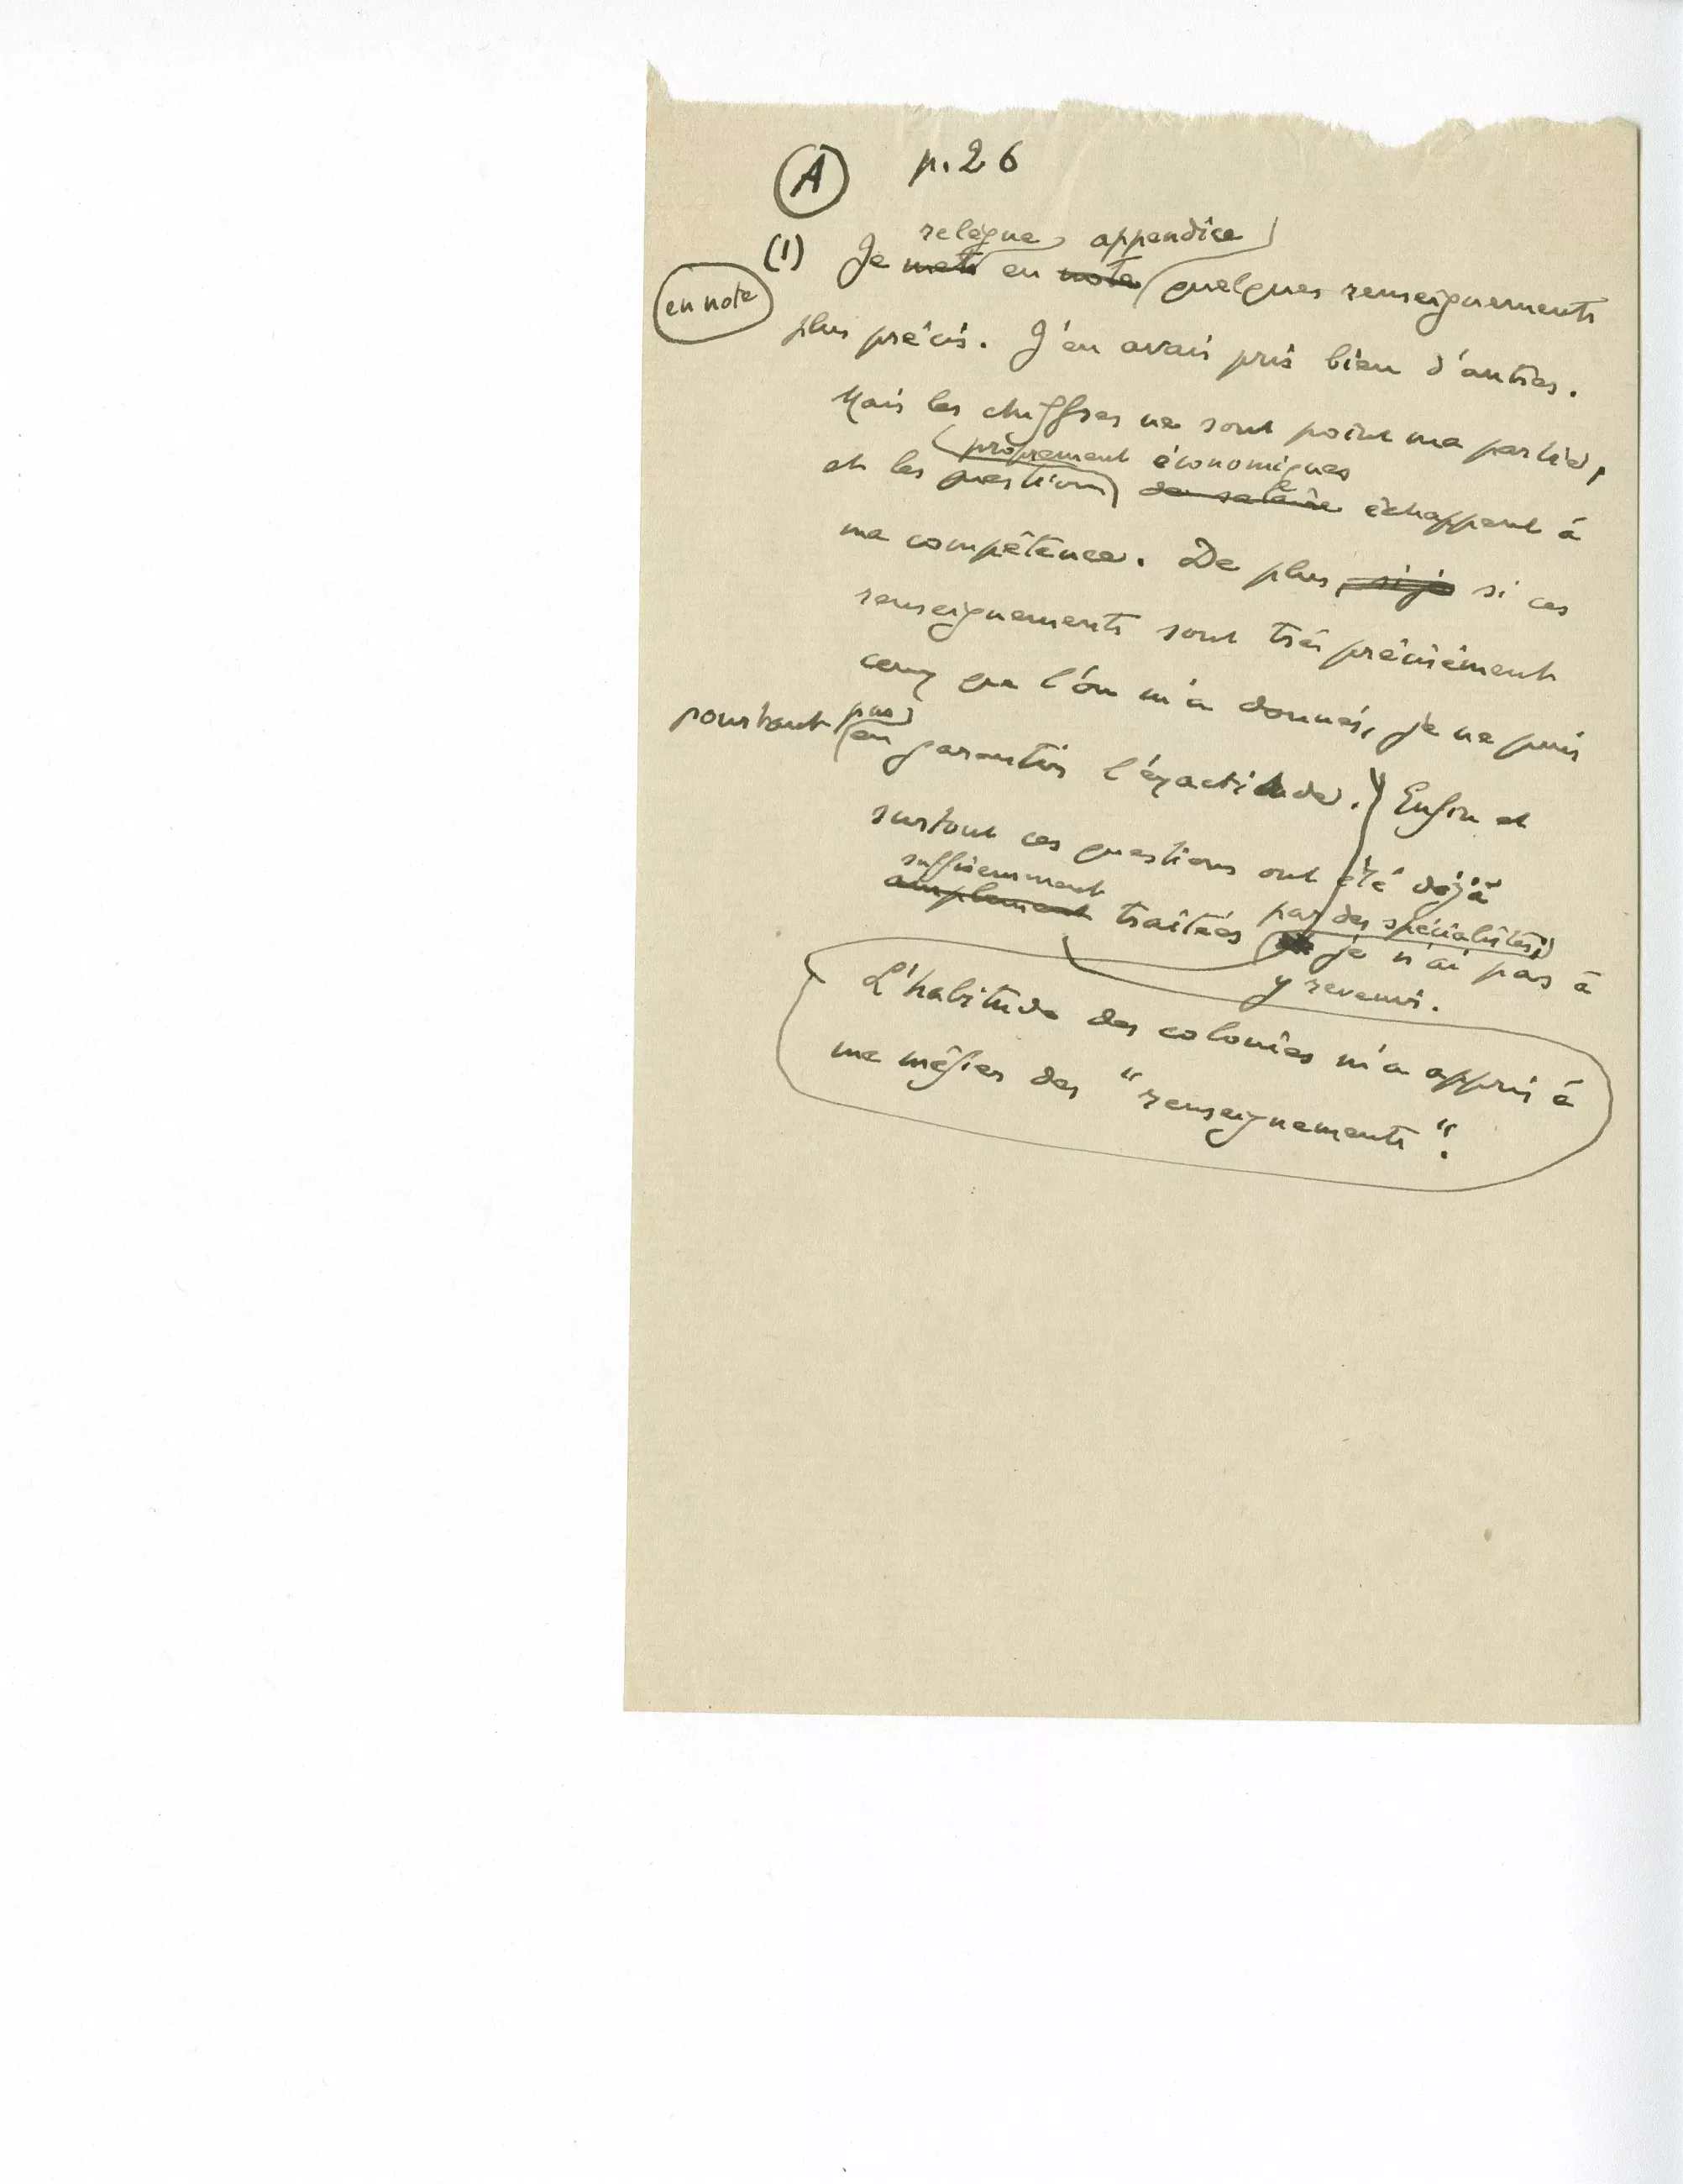 A p. 26
relègue appendice
(1) Je mets en note quelques renseignements
en note
plus précis. J'en avais pris bien d'autres.
Mais les chiffres ne sont point ma partie,
proprement économiques
et les questions de salaire échappent à
ma compétence. De plus, si je si ces
renseignements sont très précisément
ceux que l'on m'a donnés, je ne puis
pourtant pas
en garantir l'exactitude. Enfin et
surtout ces questions ont été déjà
suffisemment
amplement traitées par des spécialistes;
je n'ai pas à
y revenir.
L'habitude des colonies m'a appris à
me méfier des "renseignements".